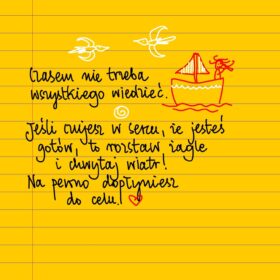 Czasem nie trzeba
wszystkiego wiedzieć.
Jeśli czujesz w sercu, że jesteś
gotów, to rozstaw żagle
i chwytaj wiatr!
Na pewno dopłyniesz
do celu!